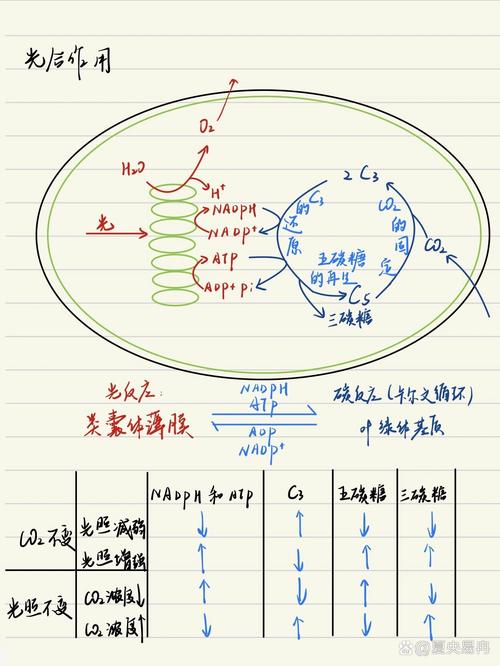 光合作用
O2
H2O
H+
NADPH
NADP+
光
ATP
ADP+Pi
2C3
C3
的还原
CO2
的固定
CO2
五碳糖
的再生
C5
三碳糖
光反应:
类囊体薄膜
NADPH
ATP
ADP
NADP+
碳反应(卡尔文循环)
叶绿体基质
NADPH和ATP C3 五碳糖 三碳糖
CO2不变 光照减弱 ↓ ↑ ↓ ↓
光照增强 ↑ ↓ ↑ ↑
光照不变 CO2浓度↓ ↑ ↓ ↑ ↓
CO2浓度↑ ↓ ↑ ↓ ↑